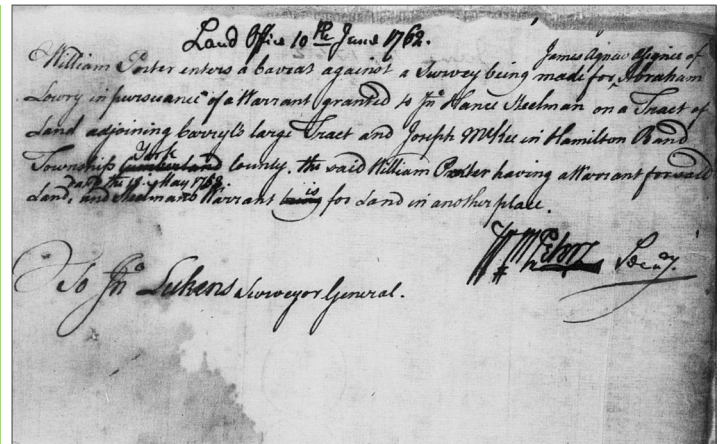 Land Office 10th June 1762.
James Agnew Asignee of
William Porter enters a Caveat against a Survey being made for ^ Abraham
Lowry in pursuance of a Warrant granted to Jno Hance Steelman on a Tract of
Land adjoining Carryl's large Tract and Joseph McKee in Hamilton Band
York
Township Cumberland County. the said William Porter having a Warrant for said
dated the May 1762
Land, and Steelman's Warrant being is for Land in another place.
Secry.
To Jno Lukens Surveyor General.